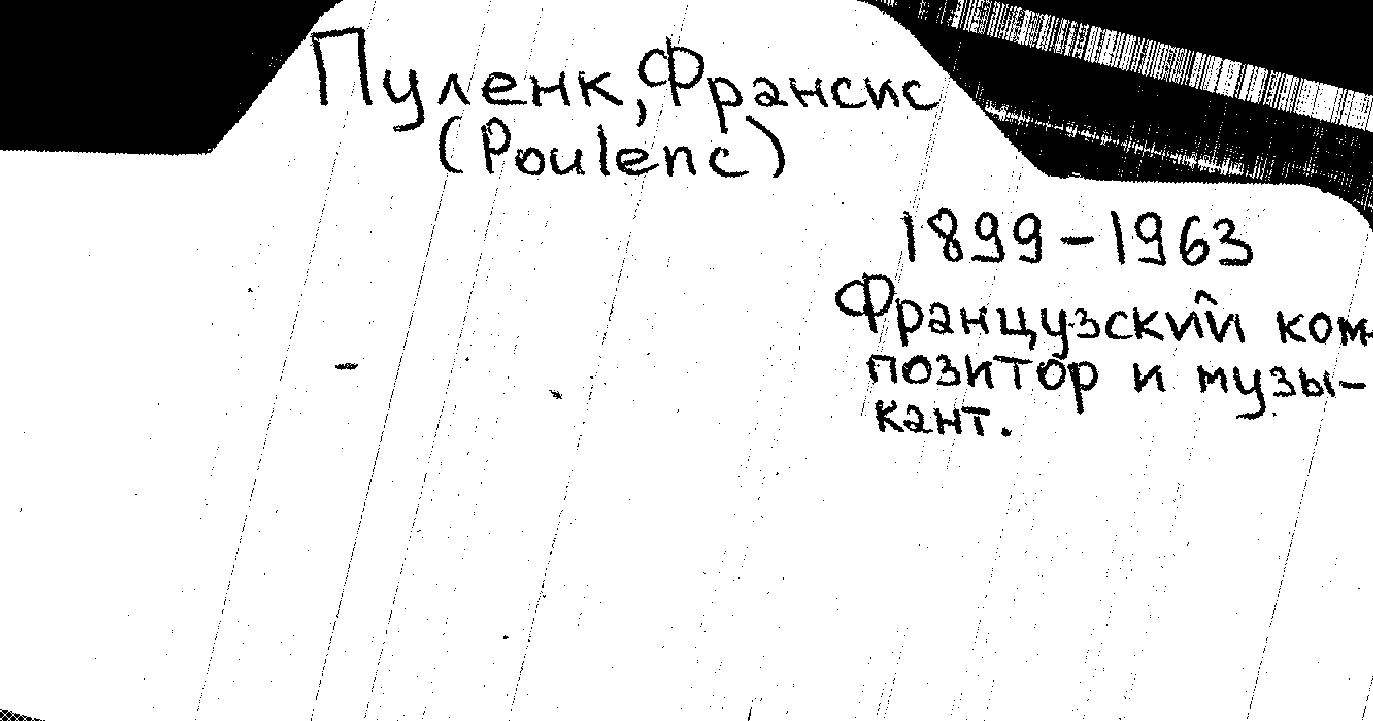 Пуленк, Франсис
(Poulenc)
1899-1963
Французский ком-
позитор и музы-
кант.